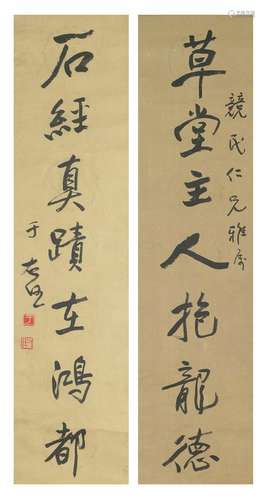 草堂主人抱龍德
競民仁兄雅屬
石經真蹟在鴻都
于右任